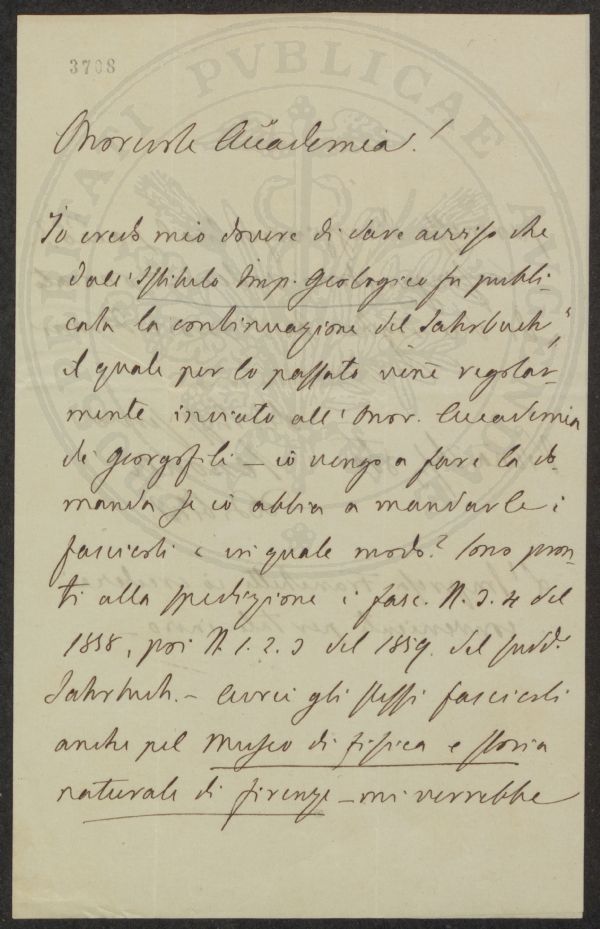 3708
PROSPERITATI PVBLICAE AVGENDAE
Onorevole Accademia!
Io credo mio dovere di dare avviso che
dall'Istituto Imp. Geologico fu publi-
cata la continuazione del Jahrbuch,
il quale per lo passato viene regolar-
mente inviato all'Onor. Accademia
dei Georgofili – io vengo a fare la do-
manda se io abbia a mandarle i
fascicoli e in quale modo? Sono pron-
ti alla spedizione i fasc. N. 3. 4 del
1858, poi N. 1. 2. 3 del 1859. del sudd.
Jahrbuch. – Avrei gli stessi fascicoli
anche pel Museo di fisica e storia
naturale di firenze – mi verrebbe